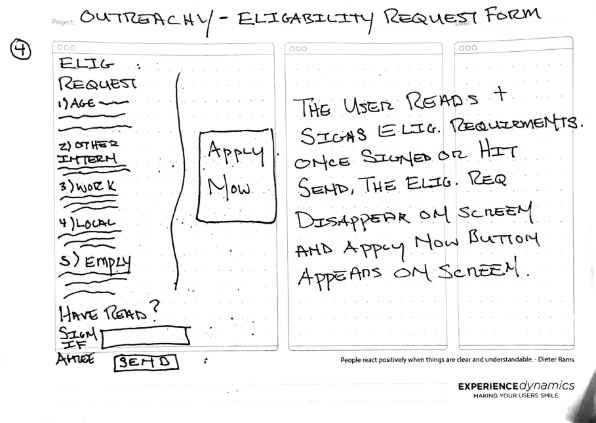 Project: OUTREACHY - ELIGABILITY REQUEST FORM
4
ELIG
REQUEST
1) AGE
2) OTHER
INTERN
3) WORK
4) LOCAL
5) EMPLY
HAVE READ?
SIGN
IF
AGREE
SEND
Apply
Now
THE USER READS +
SIGNS ELIG. REQUIRMENTS.
ONCE SIGNED OR HIT
SEND, THE ELIG. REQ
DISAPPEAR ON SCREEN
AND APPLY NOW BUTTON
APPEARS ON SCREEN.
People react positively when things are clear and understandable. - Dieter Rams
EXPERIENCEdynamics
MAKING YOUR USERS SMILE